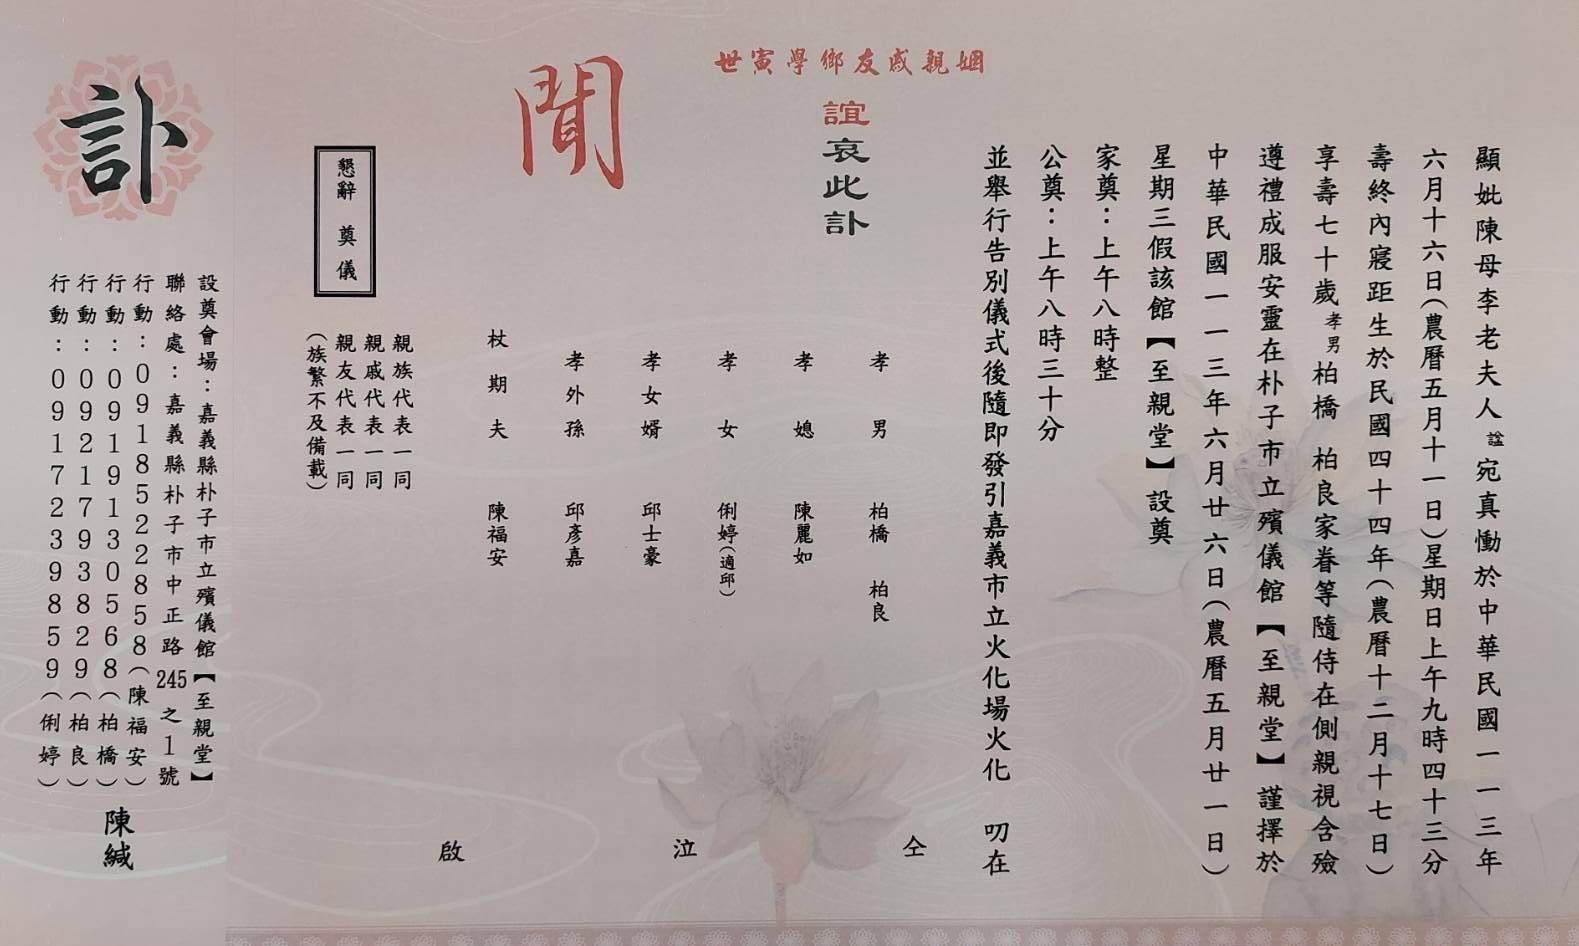 顯妣陳母李老夫人諡宛真慟於中華民國一一三年
六月十六日(農曆五月十一日)星期日上午九時四十三分
壽終內寢距生於民國四十四年(農曆十二月十七日)
享壽七十歲孝男柏橋 柏良家眷等隨侍在側親視含殮
遵禮成服安靈在朴子市立殯儀館【至親堂】謹擇於
中華民國一一三年六月廿六日(農曆五月廿一日)
星期三假該館【至親堂】設奠
家奠:上午八時整
公奠:上午八時三十分
並舉行告別儀式後隨即發引嘉義市立火化場火化 叨在
姻親戚友鄉學寅世
誼哀此訃
聞
孝男 柏橋 柏良
孝媳 陳麗如
孝女 俐婷(適邱)
孝女婿 邱士豪
孝外孫 邱彥嘉
杖期夫 陳福安
仝 泣 啟
親族代表一同
親戚代表一同
親友代表一同
(族繁不及備載)
懇辭 奠儀
訃
設奠會場:嘉義縣朴子市立殯儀館【至親堂】
聯絡處:嘉義縣朴子市中正路245之1號
行動:0918522858(陳福安)
行動:0919130568(柏橋)
行動:0921793829(柏良)
行動:0917239859(俐婷)
陳緘